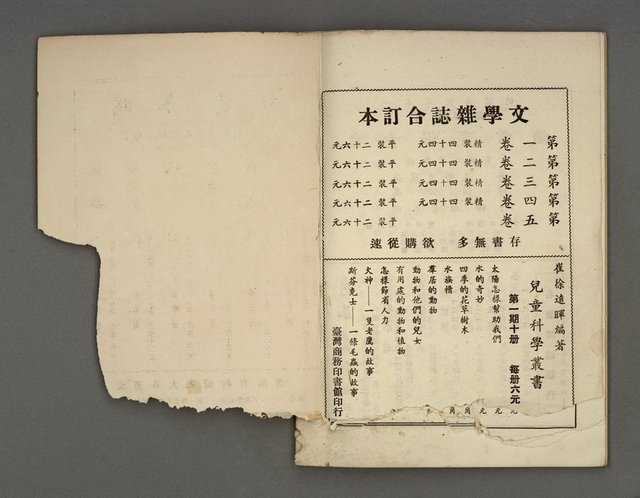 文學雜誌合訂本
第一卷 精裝四十四元 平裝二十六元
第二卷 精裝四十四元 平裝二十六元
第三卷 精裝四十四元 平裝二十六元
第四卷 精裝四十四元 平裝二十六元
第五卷 平裝二十六元
存書無多 欲購從速
崔徐遠暉編著
兒童科學叢書
第一期十册 每册六元
太陽怎樣幫助我們
水的奇妙
四季的花草樹木
水族槽
羣居的動物
動物和他們的兒女
有用處的動物和植物
怎樣節省人力
火神——一隻老鷹的故事
斯芬克士——一條毛蟲的故事
臺灣商務印書館印行